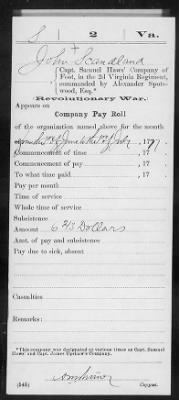 S 2 Va.
John Scandland
Capt. Samuel Haws' Company of
Foot, in the 2d Virginia Regiment,
commanded by Alexander Spots-
wood, Esq.*
Revolutionary War.
Appears on
Company Pay Roll
of the organization named above for the month
from the of June to the of July, 1777.
Commencement of time , 17 .
Commencement of pay , 17 .
To what time paid , 17 .
Pay per month
Time of service
Whole time of service
Subsistence
Amount 6 2/3 Dollars
Amt. of pay and subsistence
Pay due to sick, absent
Casualties
Remarks:
*This company was designated at various times as Capt. Samuel
Haws' and Capt. James Upshaw's Company.
(545) Copyist.